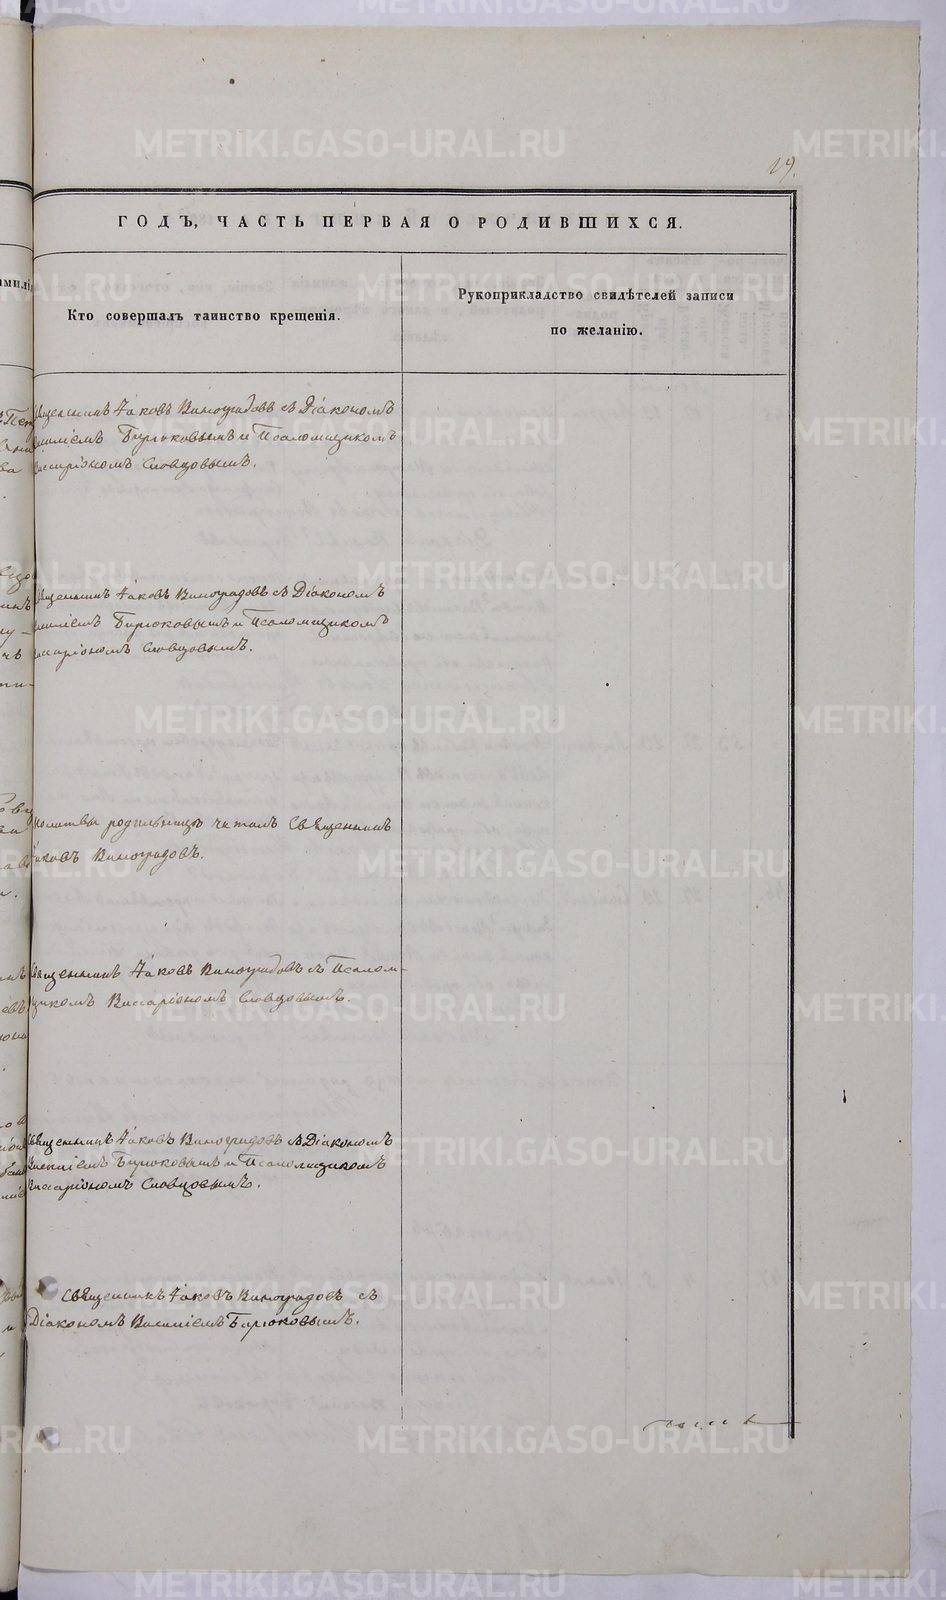 19.
ГОДЪ, ЧАСТЬ ПЕРВАЯ О РОДИВШИХСЯ.
Кто совершалъ таинство крещенія.
Рукоприкладство свидѣтелей записи
по желанію.
Священникъ Іаковъ Виноградовъ съ Діакономъ
Василіемъ Бирюковымъ и Псаломщикомъ
Виссаріономъ Словцовымъ.
Священникъ Іаковъ Виноградовъ съ Діакономъ
Василіемъ Бирюковымъ и Псаломщикомъ
Виссаріономъ Словцовымъ.
Молитвы родильницѣ читалъ Священникъ
Іаковъ Виноградовъ.
Священникъ Іаковъ Виноградовъ съ Псалом-
щикомъ Виссаріономъ Словцовымъ.
Священникъ Іаковъ Виноградовъ съ Діакономъ
Василіемъ Бирюковымъ и Псаломщикомъ
Виссаріономъ Словцовымъ.
Священникъ Іаковъ Виноградовъ съ
Діакономъ Василіемъ Бирюковымъ.
METRIKI.GASO-URAL.RU